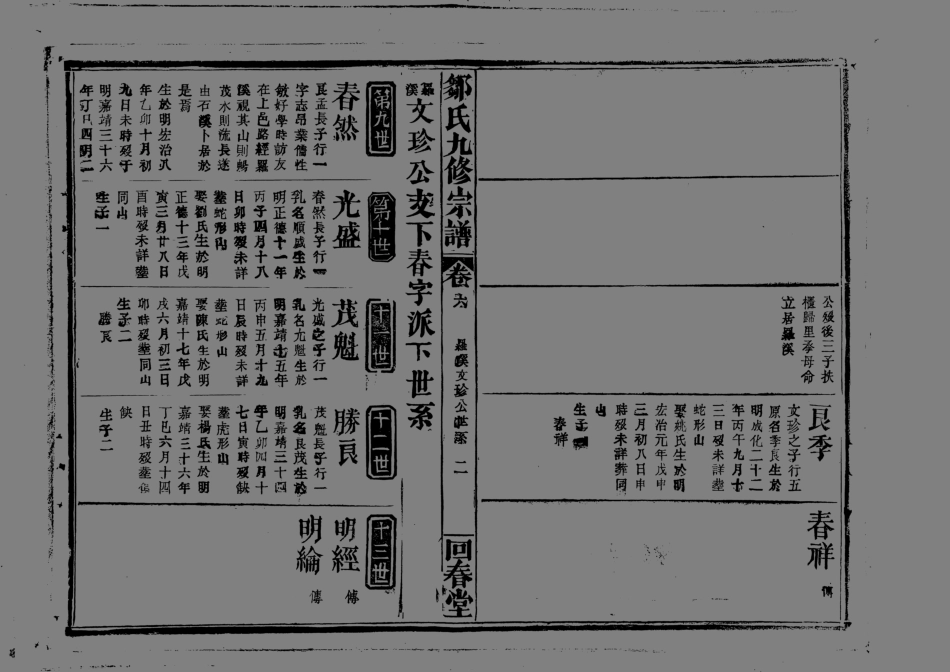 公歿後三子扶
櫬歸里奉母命
立居羅溪
良季
文珍之子行五
原名季良生於
明成化二十二
年丙午九月十
三日歿未詳塟
蛇形山
娶姚氏生於明
宏治元年戊申
三月初八日申
時歿未詳葬同
山
生子一
春祥
春祥
傳
鄒氏九修宗譜
卷六
羅溪文珍公世系
二
回春堂
羅溪文珍公支下春字派下世系
第九世
春然
良孟長子行一
字志昂業儒性
敏好學時訪友
在上邑路經羅
溪視其山則暢
茂水則流長遂
由石溪卜居於
是焉
生於明宏治八
年乙卯十月初
九日未時歿于
明嘉靖三十六
年丁巳四明二
第十世
光盛
春然長子行一
乳名順盛生於
明正德十一年
丙子四月十八
日卯時歿未詳
塟蛇形內
娶劉氏生於明
正德十三年戊
寅三月廿八日
酉時歿未詳塟
同山
生子一
十一世
茂魁
光盛之子行一
乳名尤魁生於
明嘉靖十五年
丙申五月十九
日辰時歿未詳
塟蛇形山
娶陳氏生於明
嘉靖十七年戊
戌六月初三日
卯時歿塟同山
生子二
勝良
十二世
勝良
茂魁長子行一
乳名良茂生於
明嘉靖三十四
年乙卯四月十
七日寅時歿缺
塟虎形山
娶楊氏生於明
嘉靖三十六年
丁巳六月十四
日丑時歿塟俱
缺
生子二
十三世
明經
傳
明綸
傳